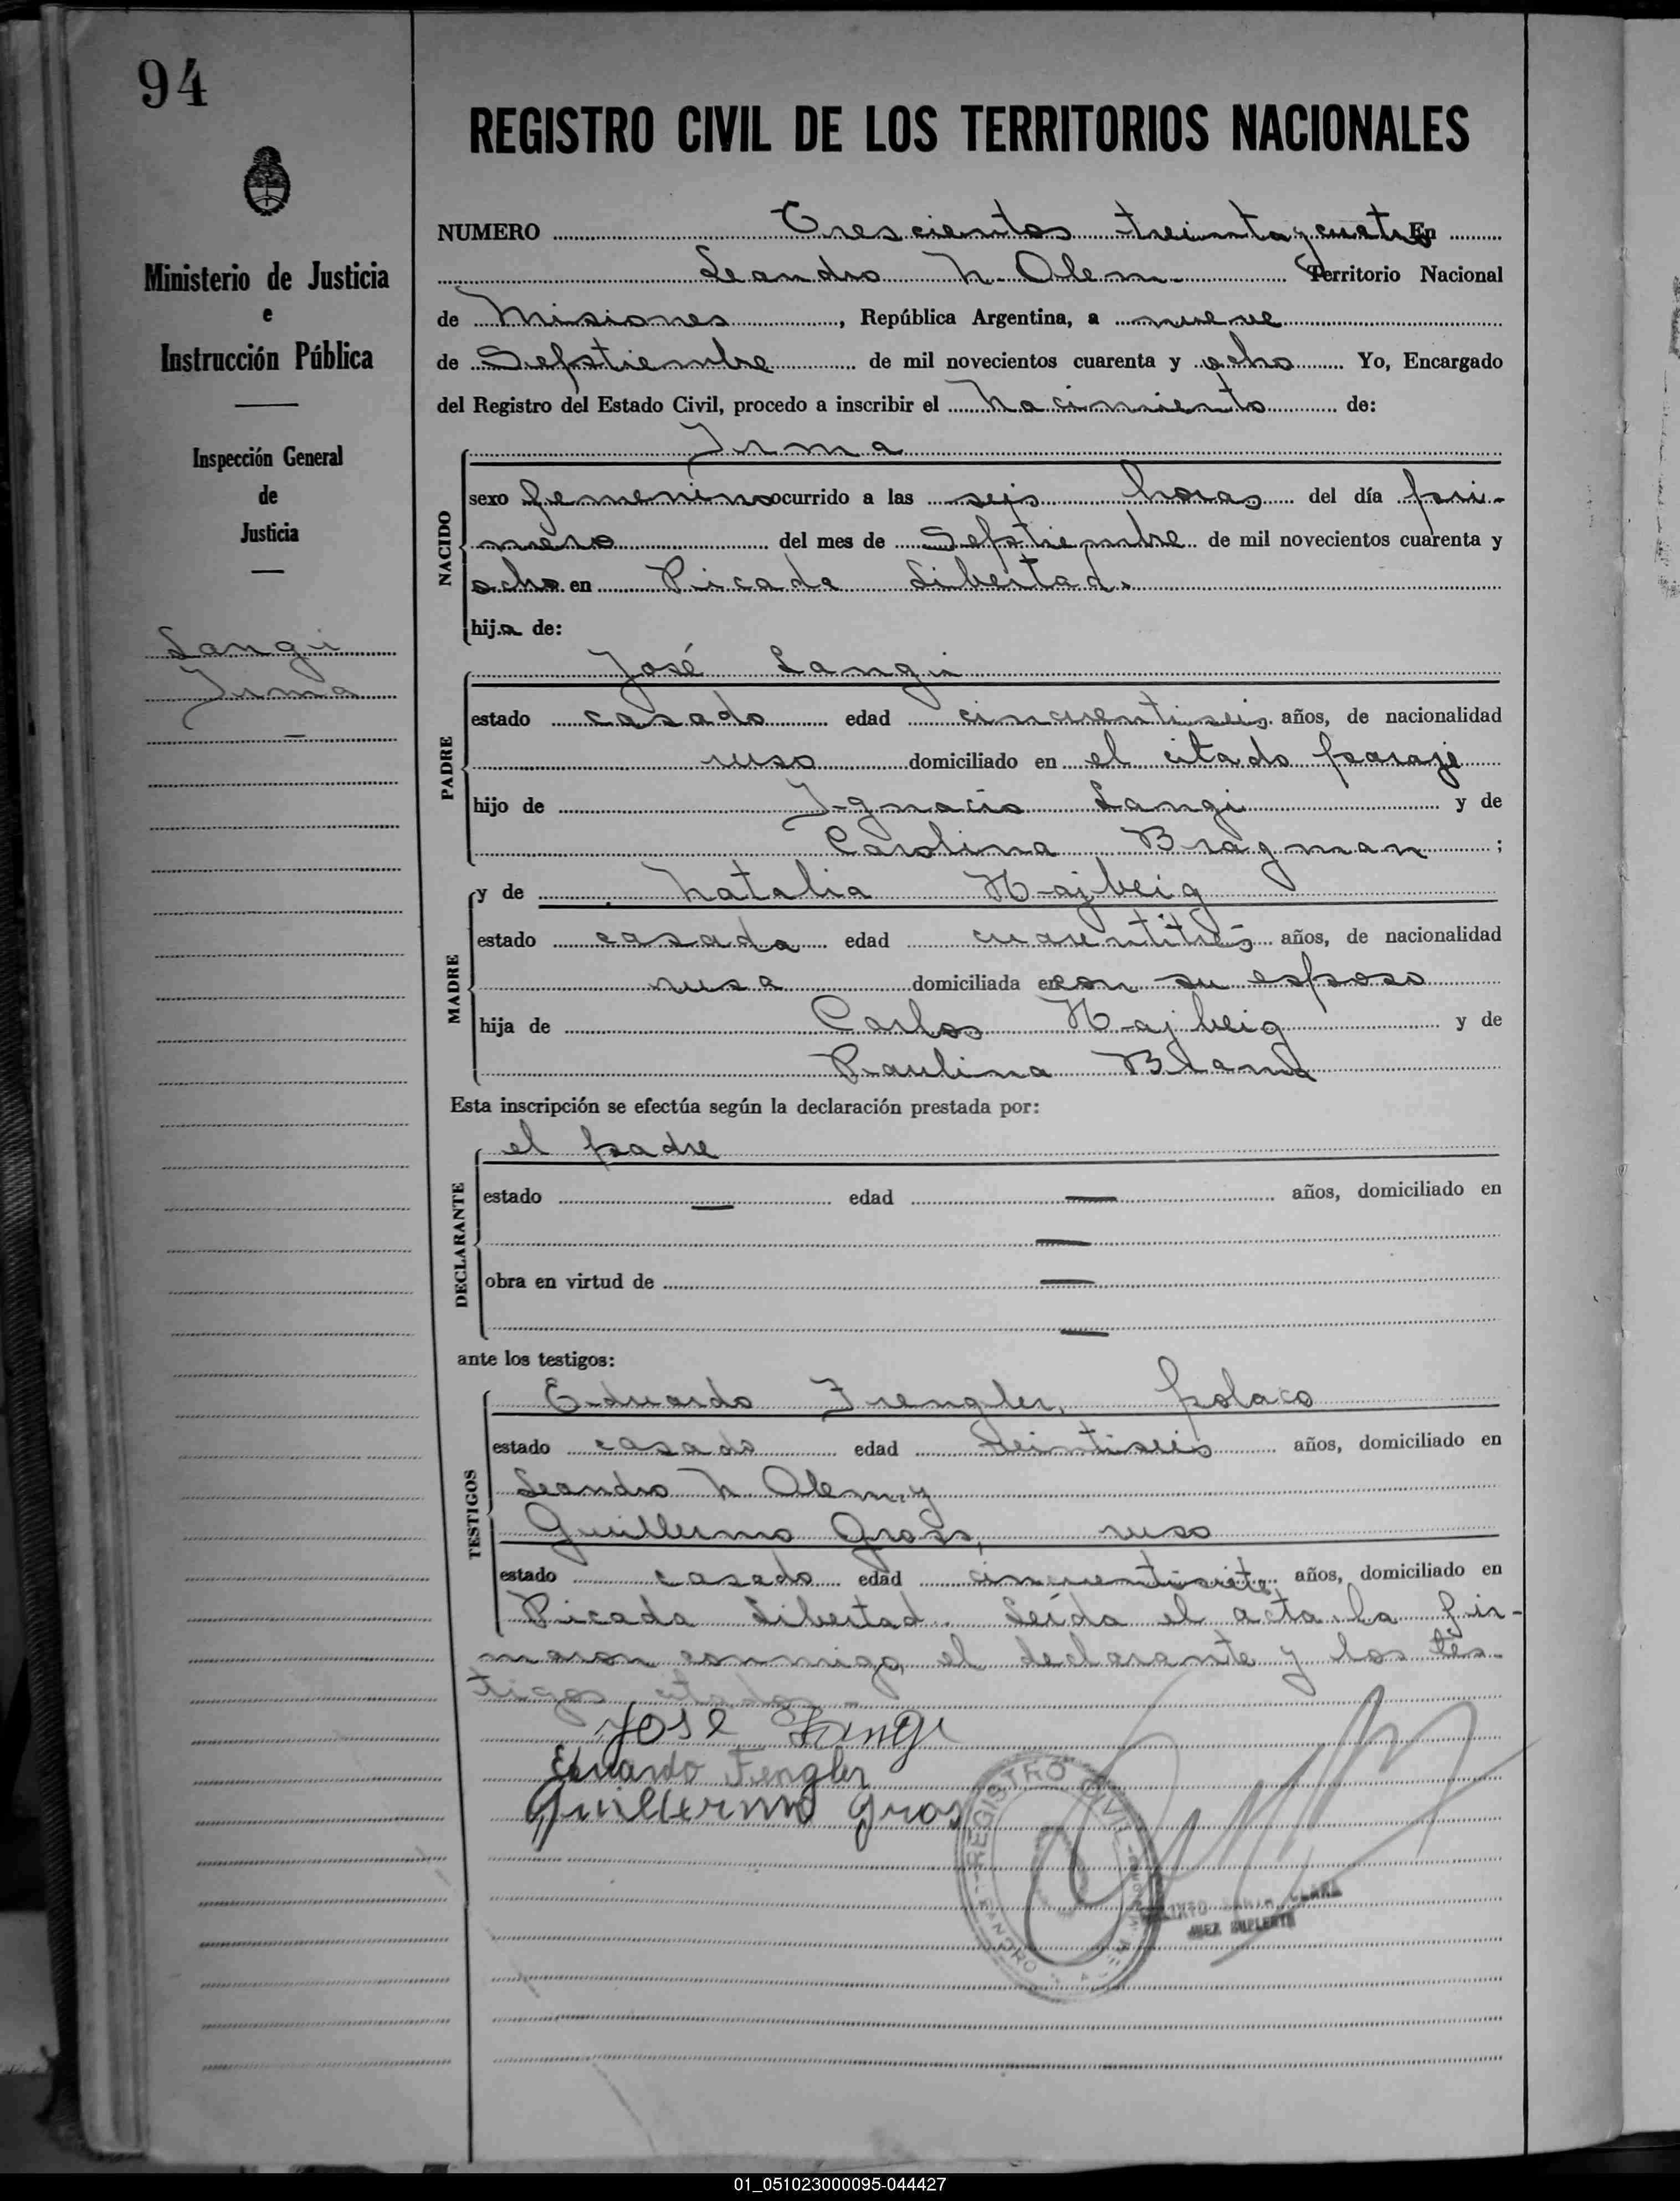 94
REGISTRO CIVIL DE LOS TERRITORIOS NACIONALES
Ministerio de Justicia
e
Instrucción Pública
Inspección General
de
Justicia
Langi
Irma
NUMERO Trescientos treinta y cuatro En
Leandro N. Alem Territorio Nacional
de Misiones, República Argentina, a nueve
de Septiembre de mil novecientos cuarenta y ocho Yo, Encargado
del Registro del Estado Civil, procedo a inscribir el nacimiento de:
NACIDO
Irma
sexo femenino ocurrido a las seis horas del día pri-
mero del mes de Septiembre de mil novecientos cuarenta y
ocho en Picada Libertad.
hija de:
PADRE
José Langi
estado casado edad cincuentiseis años, de nacionalidad
ruso domiciliado en el citado paraje
hijo de Ignacio Langi y de
Carolina Bragman ;
MADRE
y de Natalia Hajbeig
estado casada edad cuarentitrés años, de nacionalidad
rusa domiciliada en con su esposo
hija de Carlos Hajbeig y de
Paulina Bland
Esta inscripción se efectúa según la declaración prestada por:
DECLARANTE
el padre
estado — edad — años, domiciliado en
—
obra en virtud de —
—
ante los testigos:
TESTIGOS
Eduardo Frengler, polaco
estado casado edad veintiseis años, domiciliado en
Leandro N. Alem y
Guillermo Gross, ruso
estado casado edad cincuentisiete, años, domiciliado en
Picada Libertad. Leída el acta la fir-
maron conmigo, el declarante y los tes-
tigos citados.-
José Langi
Eduardo Fengler
Guillermo Gross
REGISTRO CIVIL
SANTA CLARA
JUEZ SUPLENTE
01_051023000095-044427